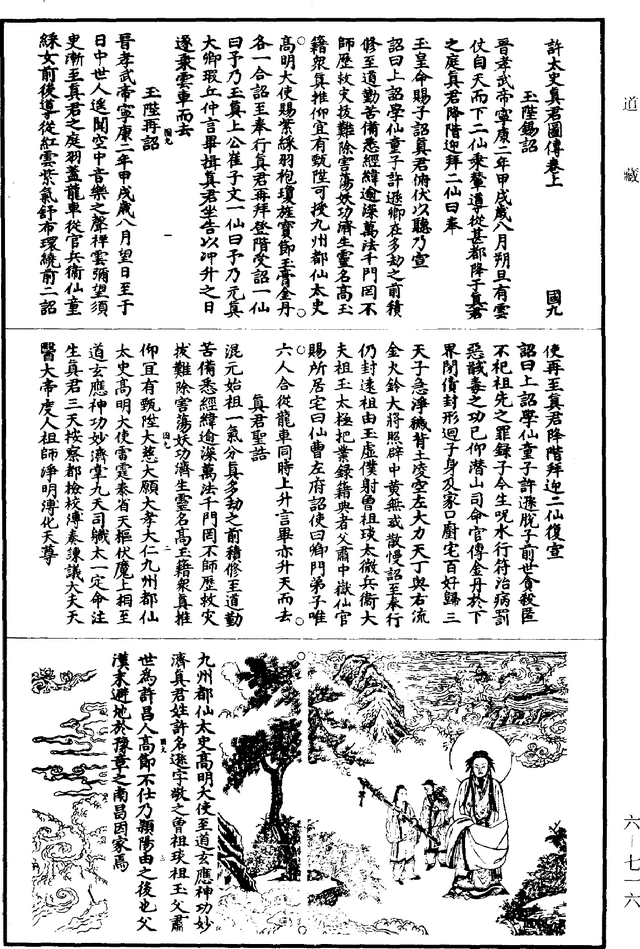 道藏
許太史真君圖傳卷上
國九
玉陛錫詔
晉孝武帝寧康二年甲戌歲八月朔旦有雲
仗自天而下二仙乘輦導從甚都降于真君
之庭真君降階迎拜二仙曰奉
玉皇命賜子詔真君俯伏以聽乃宣
詔曰上詔學仙童子許遜卿在多劫之前積
修至道勤苦備悉經緯逾深萬法千門罔不
師歷救灾拔難除害蕩妖功濟生靈名高玉
籍衆真推仰宜有甄陞可授九州都仙太史
高明大使賜紫綵羽袍瓊旌寶節玉膏金丹
各一合詔至奉行真君再拜登階受詔一仙
曰予乃玉真上公崔子文一仙曰予乃元真
大卿瑕丘仲言畢揖真君坐告以冲升之日
遂乘雲車而去
國九
一
玉陛再詔
晉孝武帝寧康二年甲戌歲八月望日至于
日中世人遙聞空中音樂之聲祥雲彌望須
史漸至真君之庭羽蓋龍車從官兵衛仙童
綵女前後導從紅雲紫氣舒布環繞前二詔
使再至真君降階拜迎二仙復宣
詔曰上詔學仙童子許遜脫子前世貪殺匿
不祀祖先之罪録子今生呪水行符治病罰
惡馘毒之功已仰潛山司命官傳金丹於下
界閉債封形迴子身及家口廚宅百好歸三
天子急淨穢背土凌空左大力天丁與右流
金火鈴大將照辟中黄無或散慢詔至奉行
仍封遠祖由玉虛僕射曾祖琰太微兵衛大
夫祖玉太極把業録籍典者父肅中嶽仙官
賜所居宅曰仙曹左府詔使曰卿門弟子唯
六人合從龍車同時上升言畢亦升天而去
真君聖誥
混元始祖一氣分真多劫之前積修至道勤
苦備悉經緯逾深萬法千門罔不師歷救灾
拔難除害蕩妖功濟生靈名高玉籍衆真推
仰宜有甄陞大慈大願大孝大仁九州都仙
國九
二
太史高明大使雷霆泰省天樞伏魔上相至
道玄應神功妙濟掌九天司職太一定命注
生真君三天按察都檢校傳奏諫議大夫天
醫大帝度人祖師淨明溥化天尊
九州都仙太史高明大使至道玄應神功妙
濟真君姓許名遜字敬之曾祖琰祖玉父肅
國九
三
世為許昌人高節不仕乃潁陽由之後也父
漢末避地於豫章之南昌因家焉
六—七一六